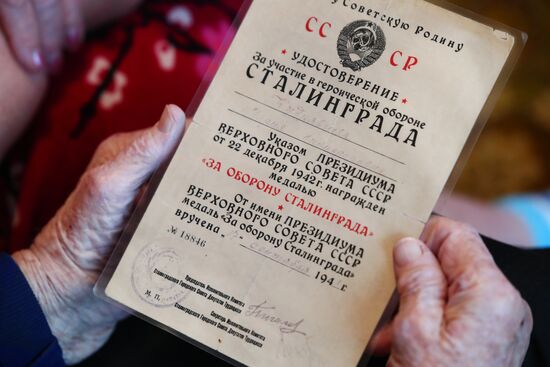 у Советскую Родину
СС СР
УДОСТОВЕРЕНИЕ
За участие в героической обороне
СТАЛИНГРАДА
Указом ПРЕЗИДИУМА
ВЕРХОВНОГО СОВЕТА СССР
от 22 декабря 1942 г. награжден
медалью
«ЗА ОБОРОНУ СТАЛИНГРАДА»
От имени ПРЕЗИДИУМА
ВЕРХОВНОГО СОВЕТА СССР
медаль «За оборону Сталинграда»
вручена 194 г.
№ 18846
Председатель Исполнительного Комитета
Сталинградского Городского Совета Депутатов Трудящихся
М. П.
Секретарь Исполнительного Комитета
Сталинградского Городского Совета Депутатов Трудящихся